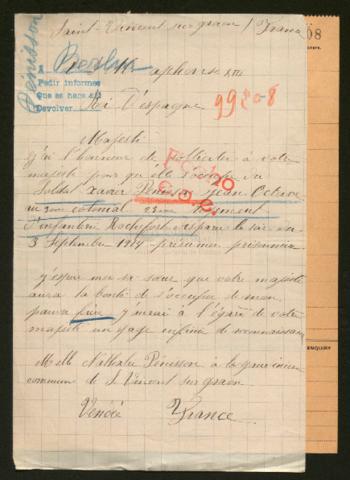 Saint Vincent sur graon / France
Pénisson
A Berlin
Pedir informes
Que se hace de
Devolver
Alphonse XIII
Roi d'espagne
99208
08
Majesté
j'ai l'honneur de solliciter à votre
majesté pour qu'elle s'occupe du
Soldat Xavier Pénisson Jean Octave
au 3eme colonial 23eme Régiment
d'infanterie Rochefort disparu le
3 Septembre 1914 présumé prisonnier
j'espère que votre majesté
aura la bonté de s'occuper de mon
pauvre frère j'aurai à l'égard de votre
majesté un gage infini de reconnaissance
Melle Nathalie Pénisson à la
commune de St Vincent sur graon
Vendée France
ENQUIRY